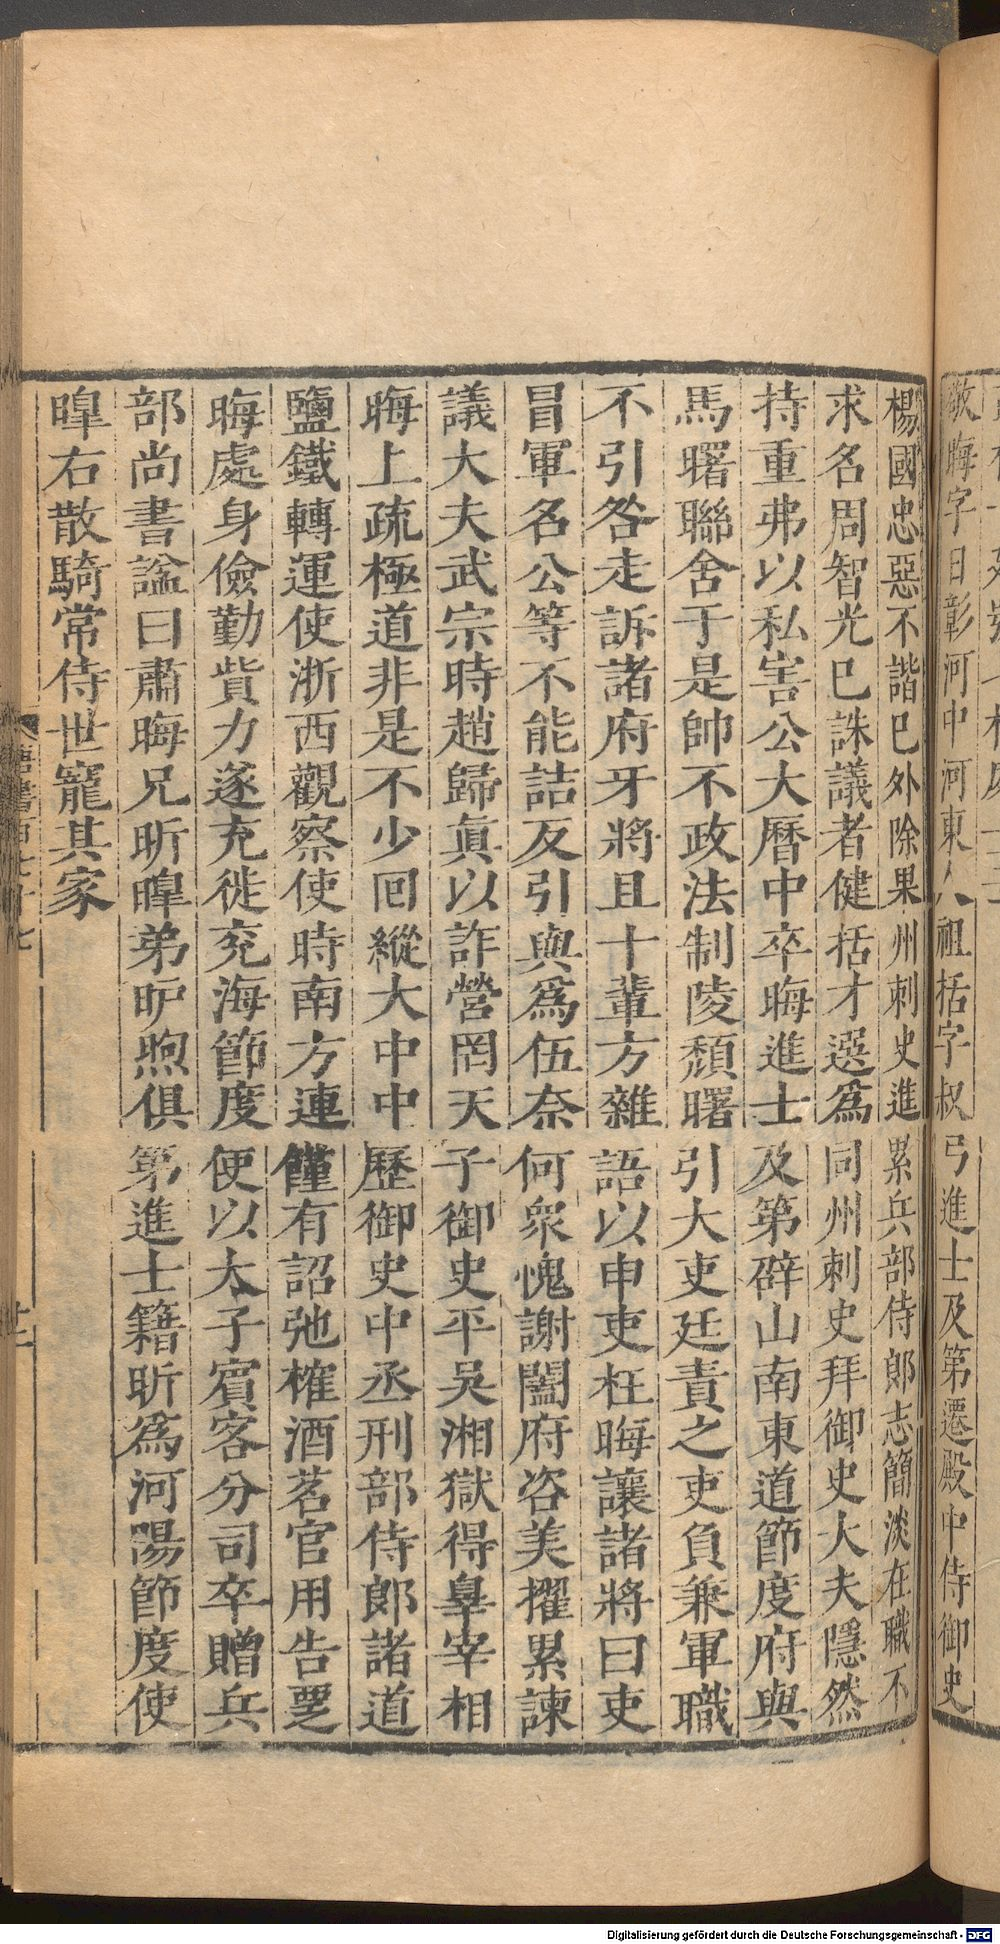 敬晦字日彰河中河東人祖括字叔弓進士及第遷殿中侍御史
楊國忠惡不諧巳外除果州刺史進累兵部侍郎志簡淡在職不
求名周智光巳誅議者健括才選爲同州刺史拜御史大夫隱然
持重弗以私害公大曆中卒晦進士及第辟山南東道節度府與
馬曙聯舍于是帥不政法制陵頹曙引大吏廷責之吏負兼軍職
不引咎走訴諸府牙將且十輩方雜語以申吏枉晦讓諸將曰吏
冒軍名公等不能詰反引與爲伍奈何衆愧謝闔府咨美擢累諫
議大夫武宗時趙歸眞以詐營罔天子御史平吳湘獄得辠宰相
晦上疏極道非是不少回縱大中中歷御史中丞刑部侍郎諸道
鹽鐵轉運使浙西觀察使時南方連饉有詔弛榷酒茗官用告罌
晦處身儉勤貲力遂充徙兖海節度使以太子賓客分司卒贈兵
部尚書諡曰肅晦兄昕暭弟昈煦俱第進士籍昕爲河陽節度使
暭右散騎常侍世寵其家
唐書百七十七
廿二
Digitalisierung gefördert durch die Deutsche Forschungsgemeinschaft - DFG